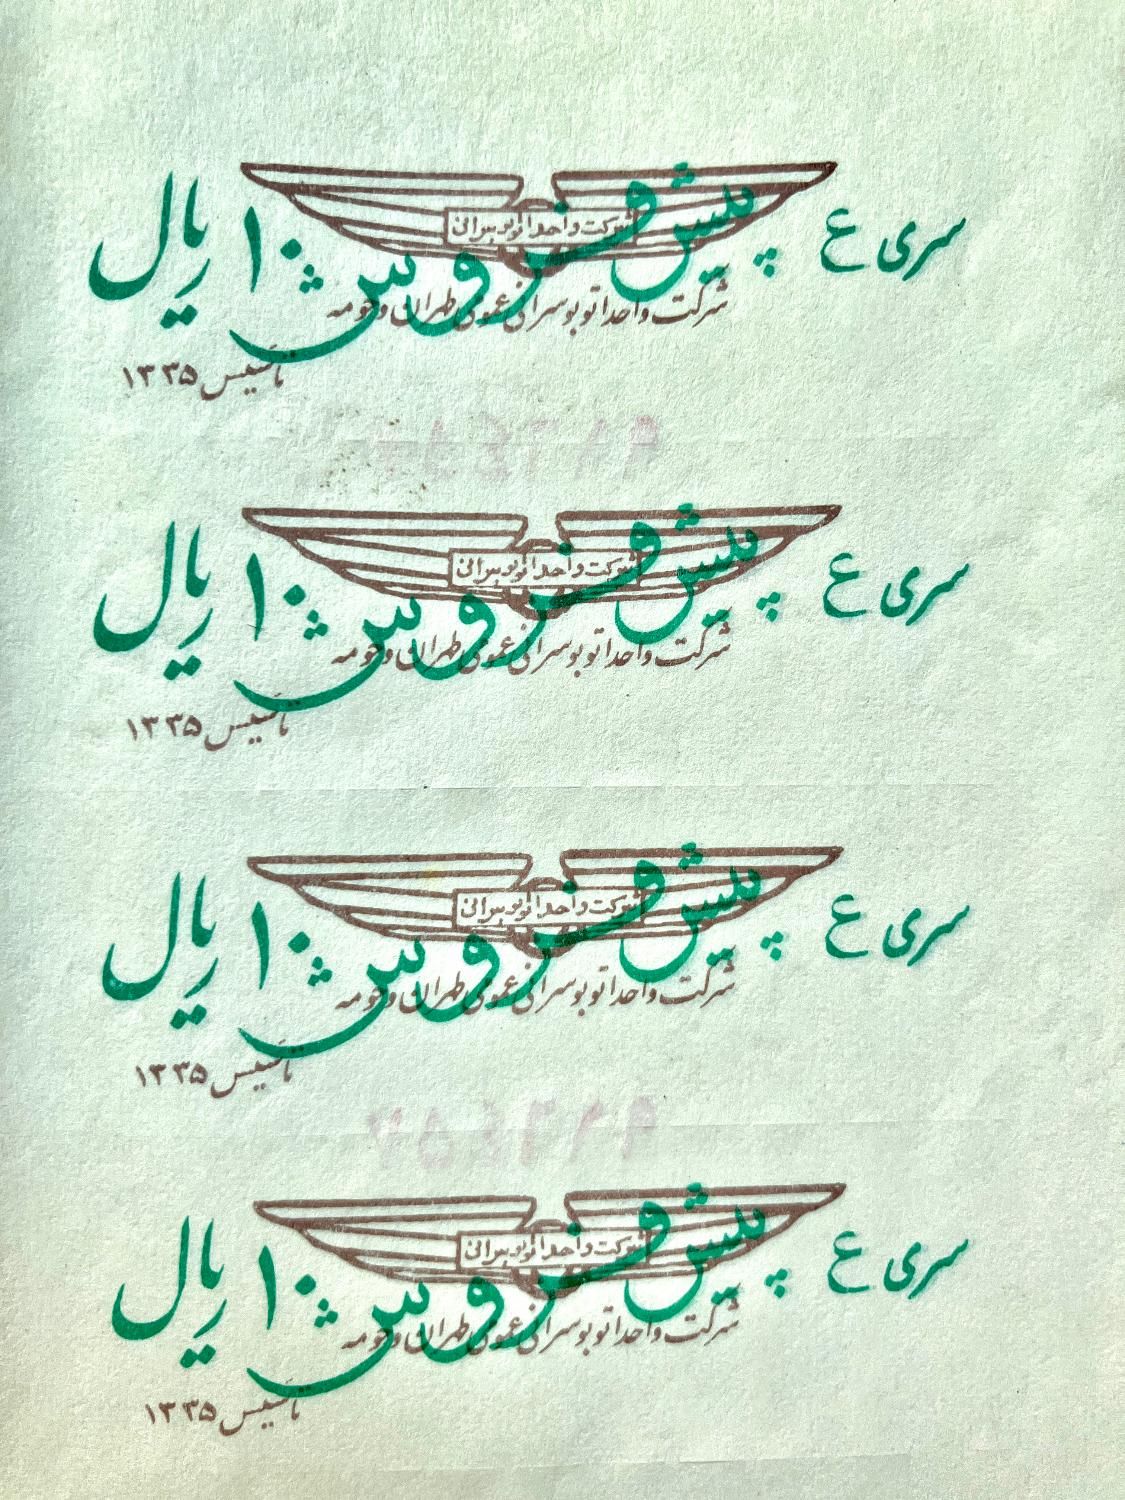 سری ع پیش فروش ۱۰ ریال
شرکت واحد اتوبوسرانی
شرکت واحد اتوبوسرانی عمومی طهران و حومه
تاسیس ۱۳۳۵
سری ع پیش فروش ۱۰ ریال
شرکت واحد اتوبوسرانی
شرکت واحد اتوبوسرانی عمومی طهران و حومه
تاسیس ۱۳۳۵
سری ع پیش فروش ۱۰ ریال
شرکت واحد اتوبوسرانی
شرکت واحد اتوبوسرانی عمومی طهران و حومه
تاسیس ۱۳۳۵
سری ع پیش فروش ۱۰ ریال
شرکت واحد اتوبوسرانی
شرکت واحد اتوبوسرانی عمومی طهران و حومه
تاسیس ۱۳۳۵